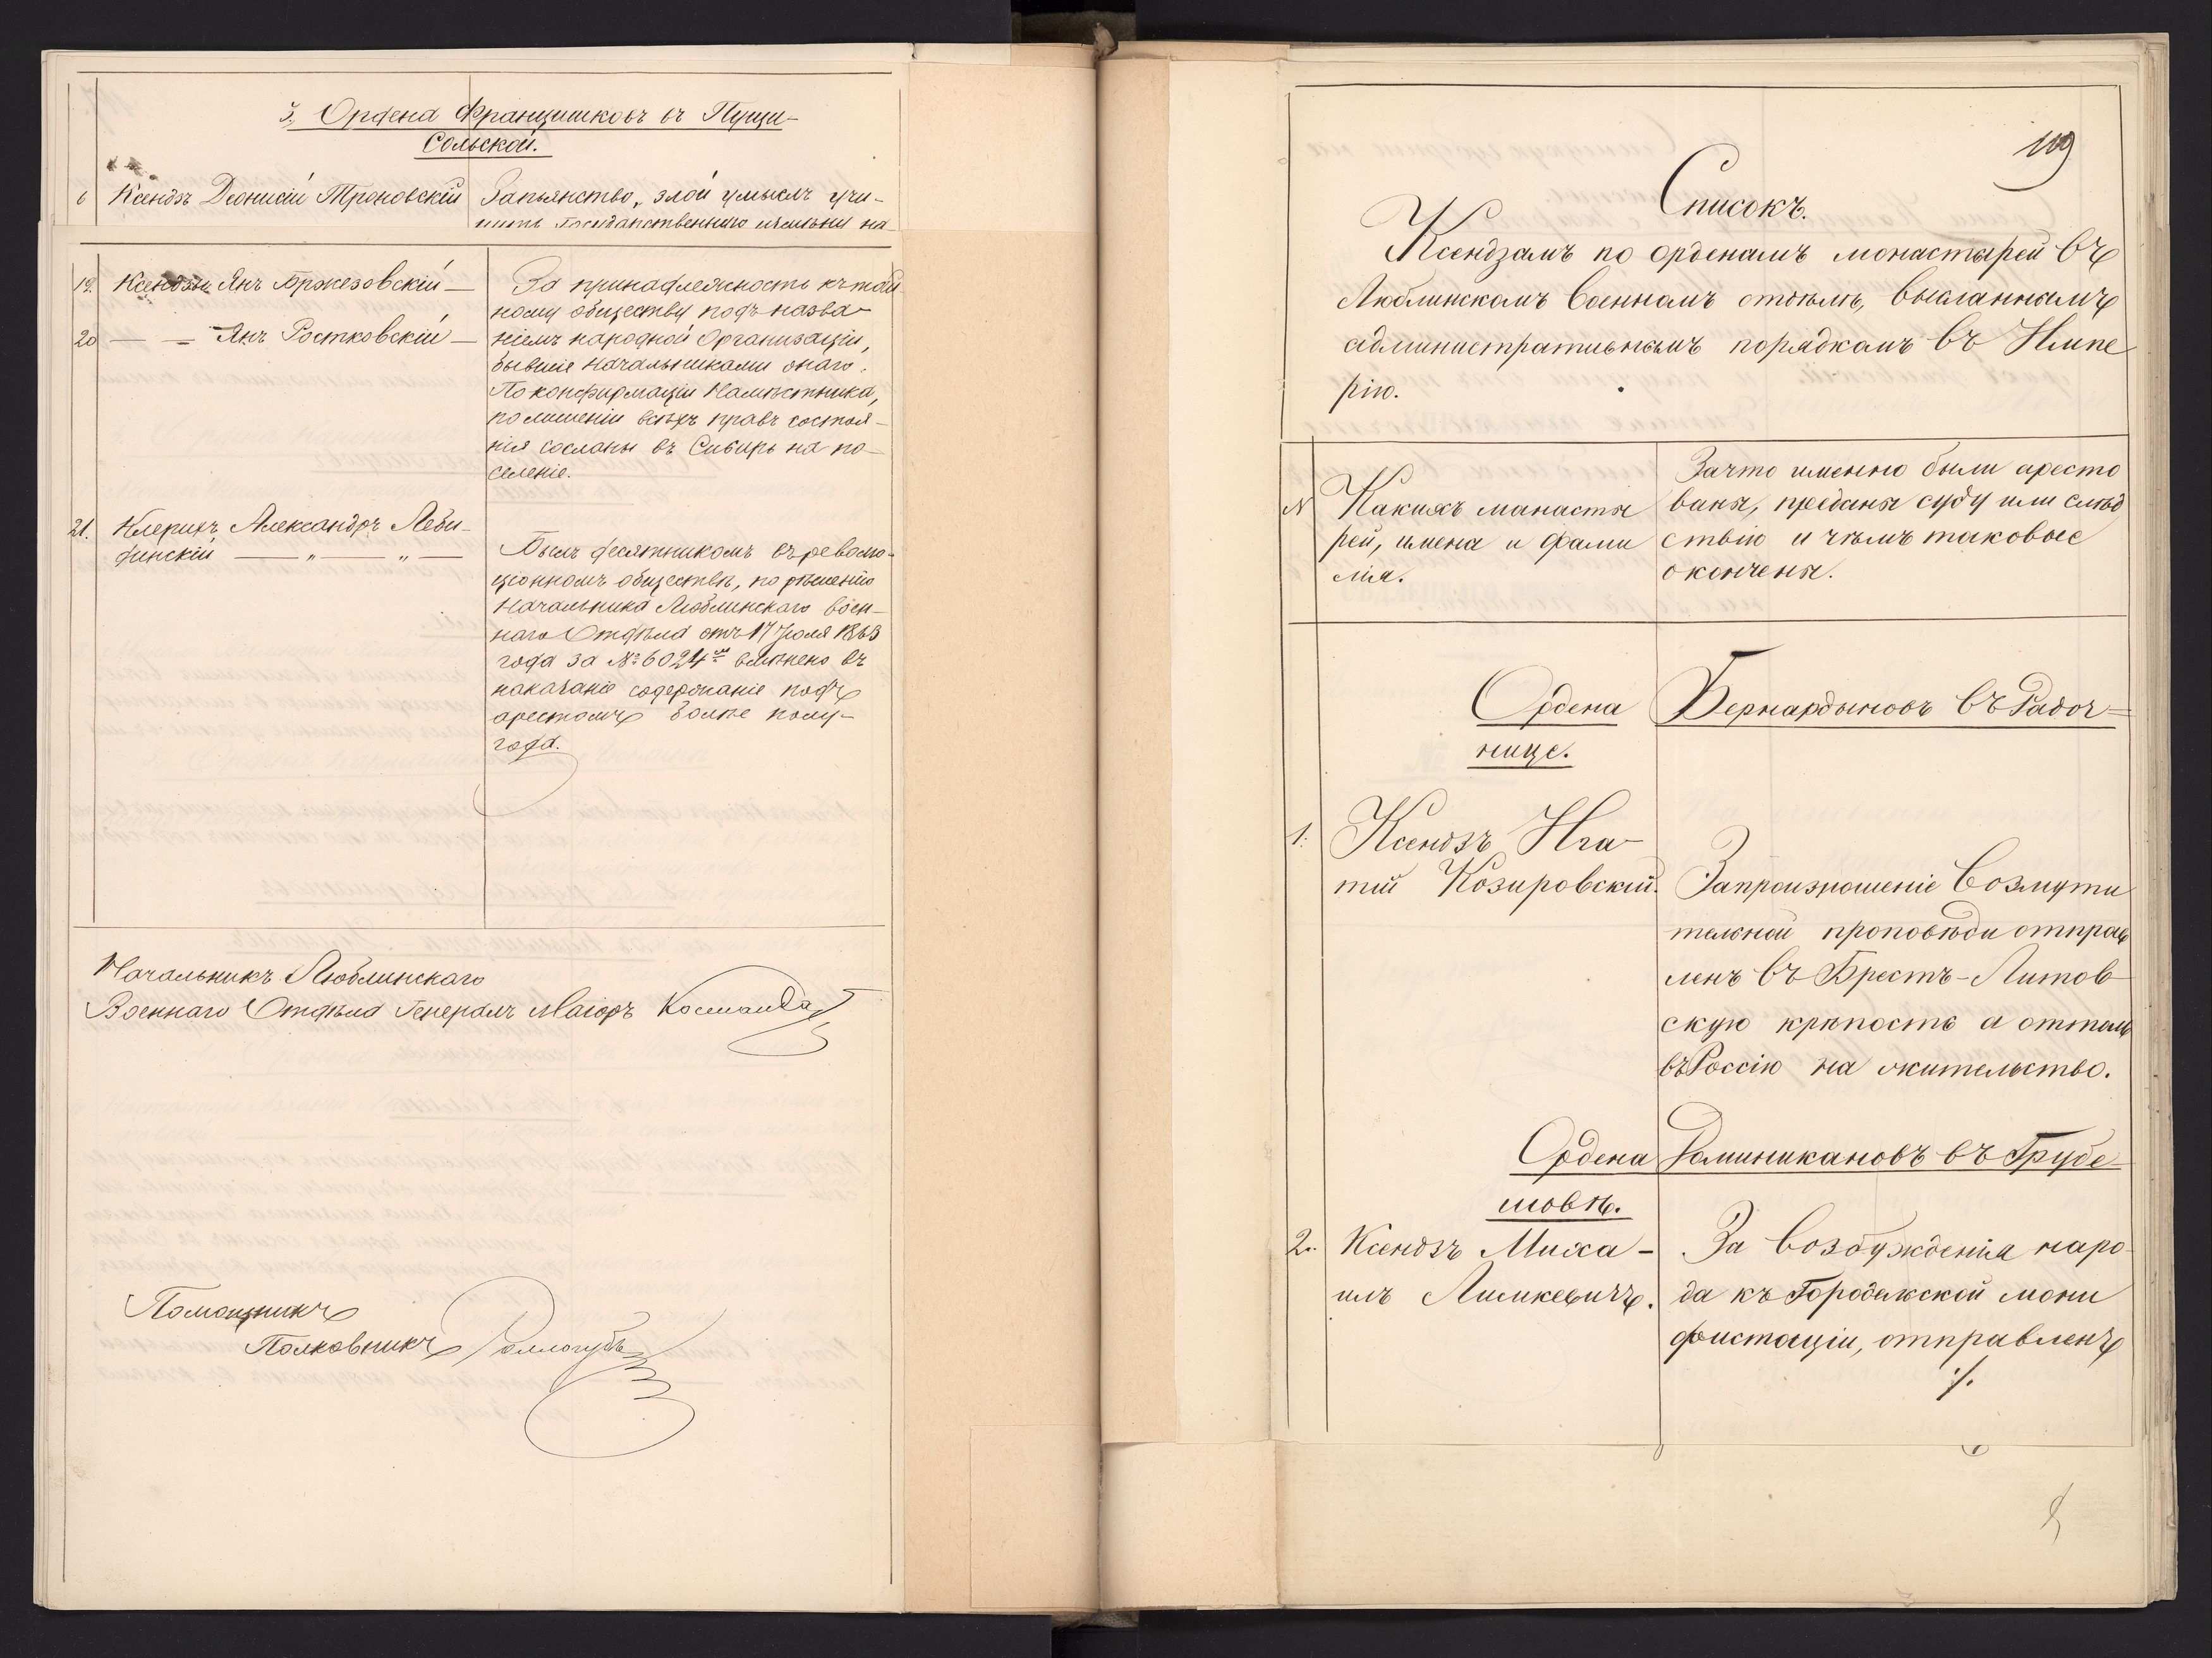 3. Ордена Францишковъ въ Пущи-
Сольской.
6 Ксендзъ Деонисій Троновскій Запьянство, злой умыслъ учи-
нить Государственную измѣну на-
19. Ксендзъ Янъ Бржезовскій —
20 — — Янъ Ростковскій —
За принадлежность къ тай
ному обществу подъ назва-
ніемъ народной Организаціи,
бывшіе начальниками онаго.
По конфирмаціи Намѣстника,
по лишеніи всѣхъ правъ состоя-
нія сосланы въ Сибирь на по-
селеніе.
21. Клерикъ Александръ Леби-
динскій — „ — „ —
Былъ десятникомъ въ револю-
ціонномъ обществѣ, по рѣшенію
Начальника Люблинскаго Воен-
наго Отдѣла отъ 17 Іюля 1865
года за № 6024 вмѣнено въ
наказаніе содержаніе подъ
арестомъ болѣе полу-
года.
Начальникъ Люблинскаго
Военнаго Отдѣла Генералъ Маіоръ
Помощникъ
Полковникъ
119
Списокъ.
Ксендзамъ по орденамъ монастырей въ
Люблинскомъ военномъ отдѣлѣ, высланнымъ
административнымъ порядкомъ въ Импе
рію.
N
Какихъ манасты
рей, имена и фами
лія.
Зачто именно были аресто
ваны, преданы суду или слѣд
ствію и чѣмъ таковые
окончены.
Ордена Бернардыновъ въ Радоч=
ницѣ.
1. Ксендзъ Игна-
тій Козировскій.
Запроизношеніе возмути
тельной проповѣди отправ
ленъ въ Брестъ-Литов
скую крѣпость а оттоль
въ Россію на жительство.
Ордена Доминикановъ въ Грубе-
шовѣ.
2. Ксендзъ Миха-
илъ Лимкевичъ.
За возбужденія наро-
да къ Городельской мони
фистаціи, отправленъ
./.